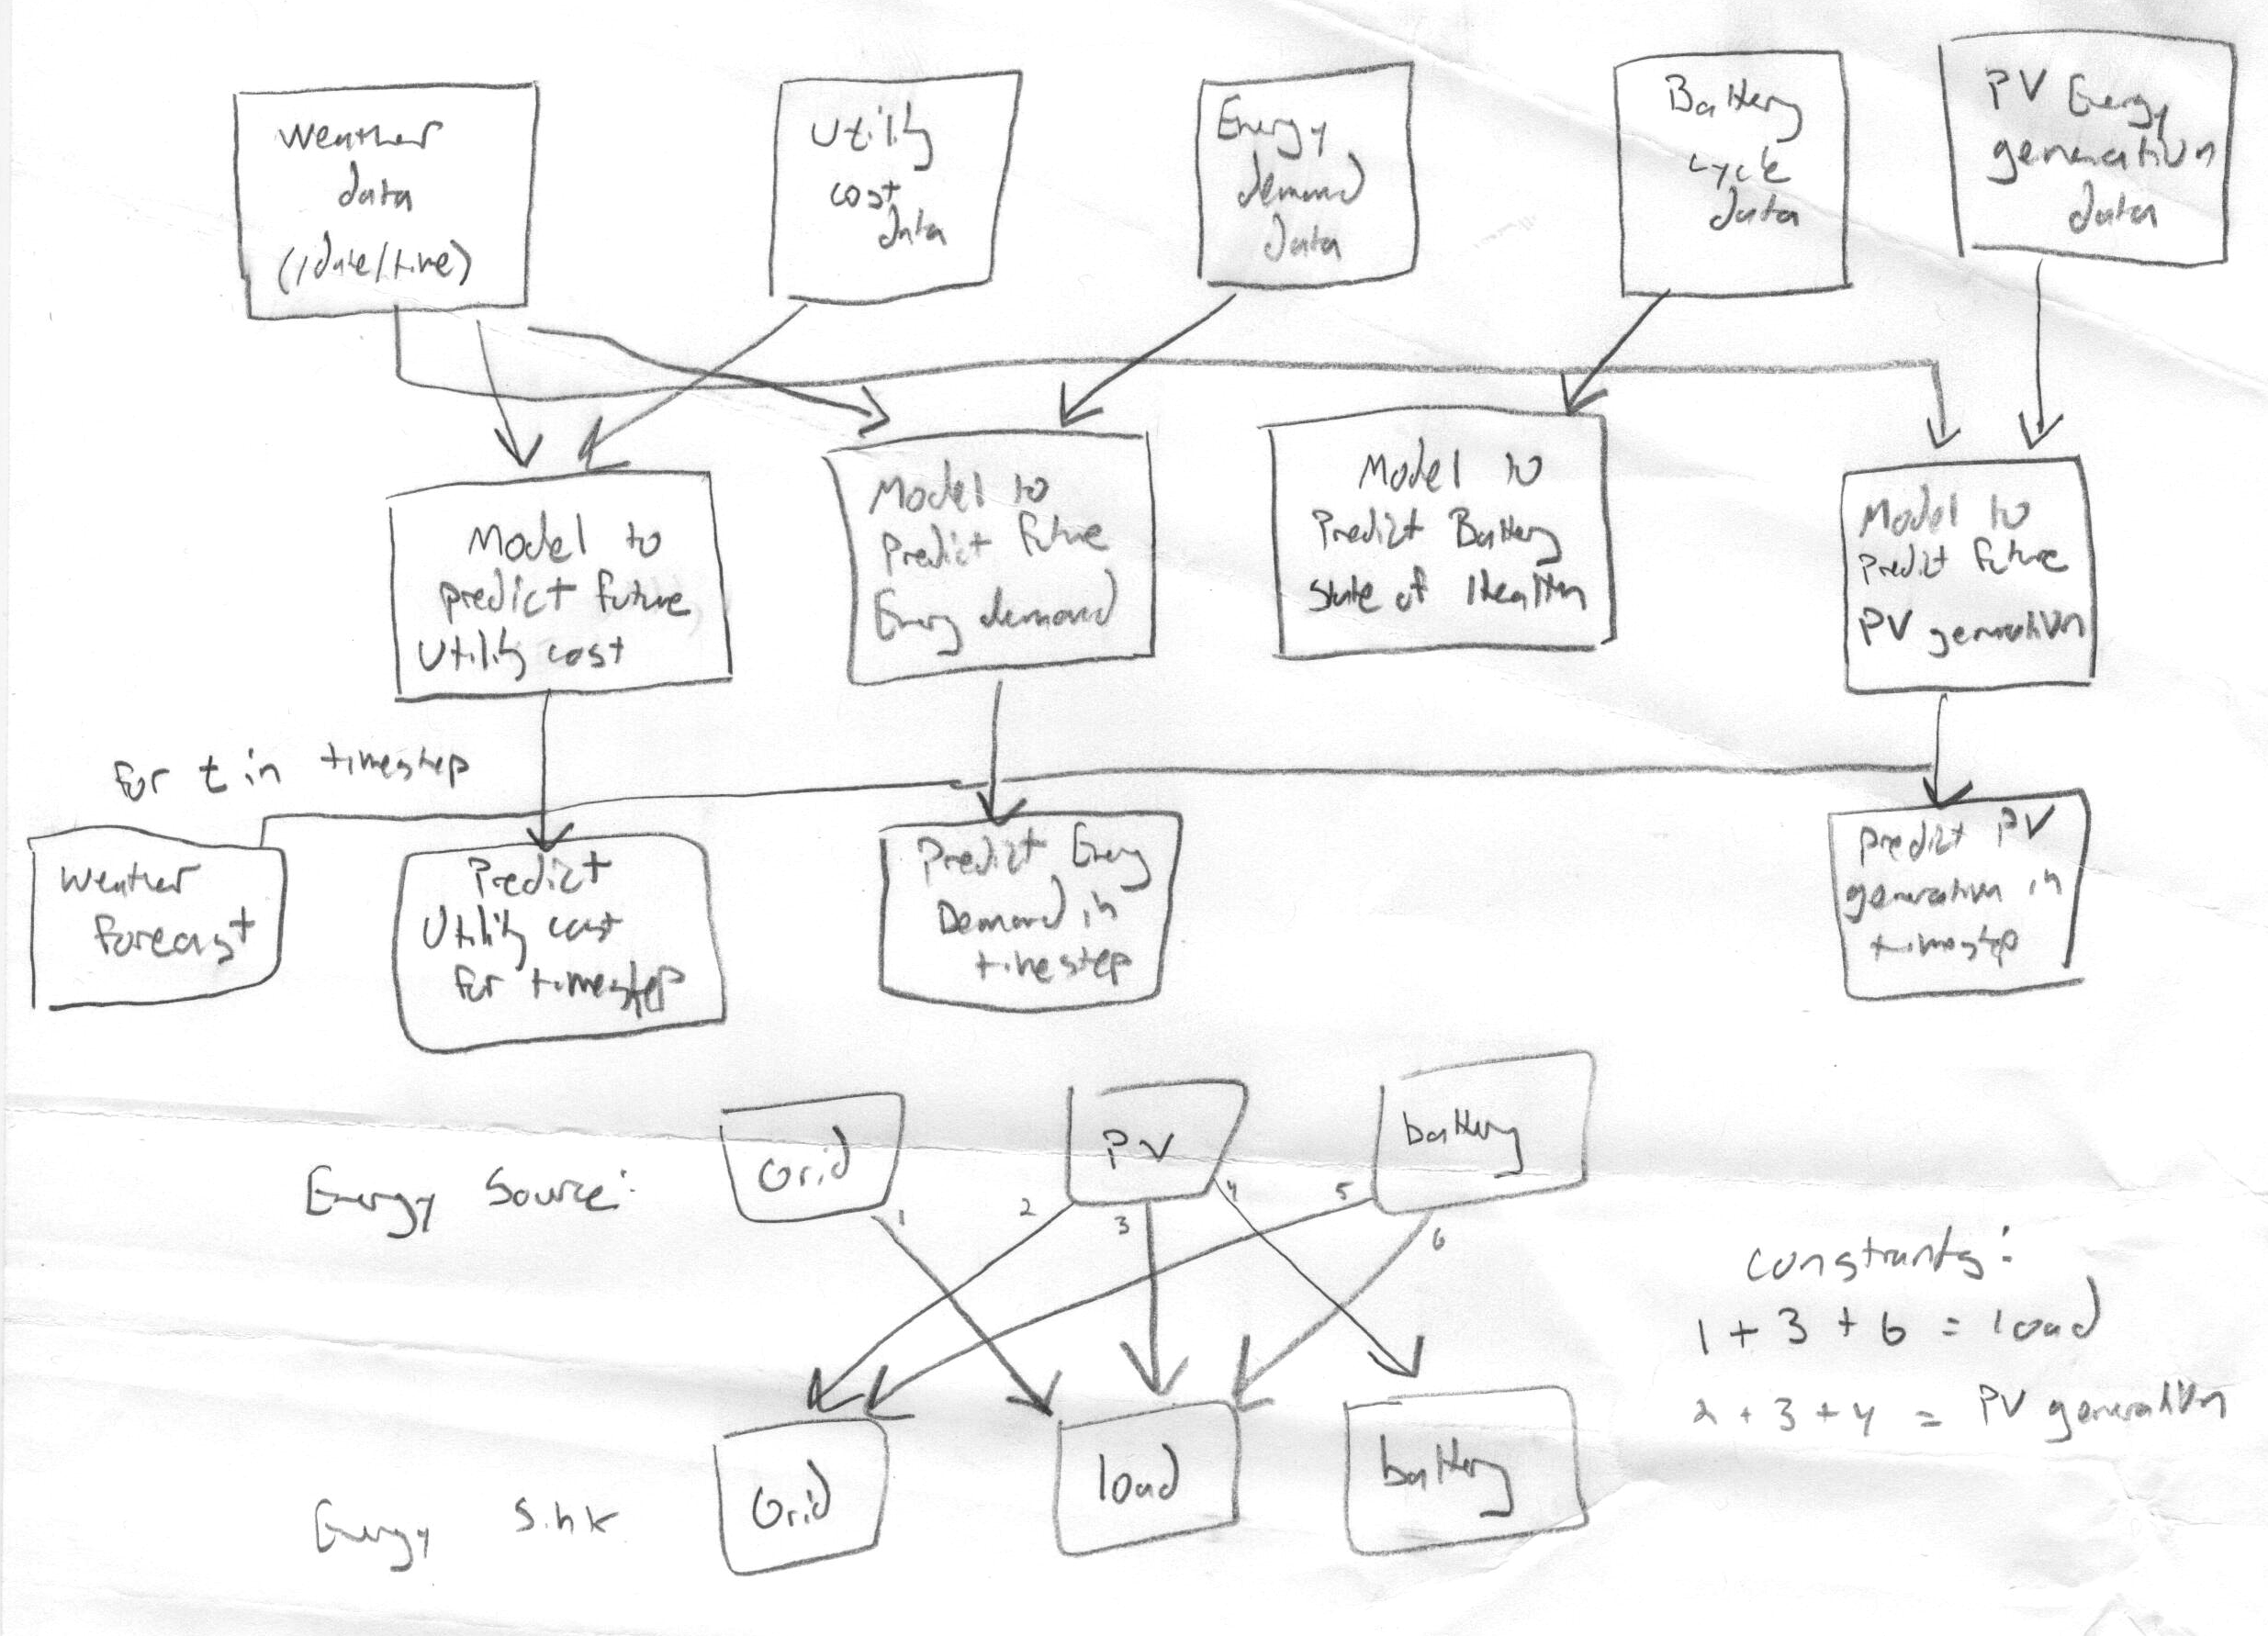 Weather
data
(/date/time)
Utility
cost
data
Energy
demand
data
Battery
cycle
data
PV Energy
generation
data
Model to
predict future
Utility cost
Model to
Predict future
Energy demand
Model to
Predict Battery
State of Health
Model to
Predict future
PV generation
for t in timestep
Weather
forecast
Predict
Utility cost
for timestep
Predict Energy
Demand in
timestep
Predict PV
generation in
timestep
Energy Source:
Grid
PV
battery
1
2
3
4
5
6
Energy Sink
Grid
load
battery
constraints:
1 + 3 + 6 = load
2 + 3 + 4 = PV generation